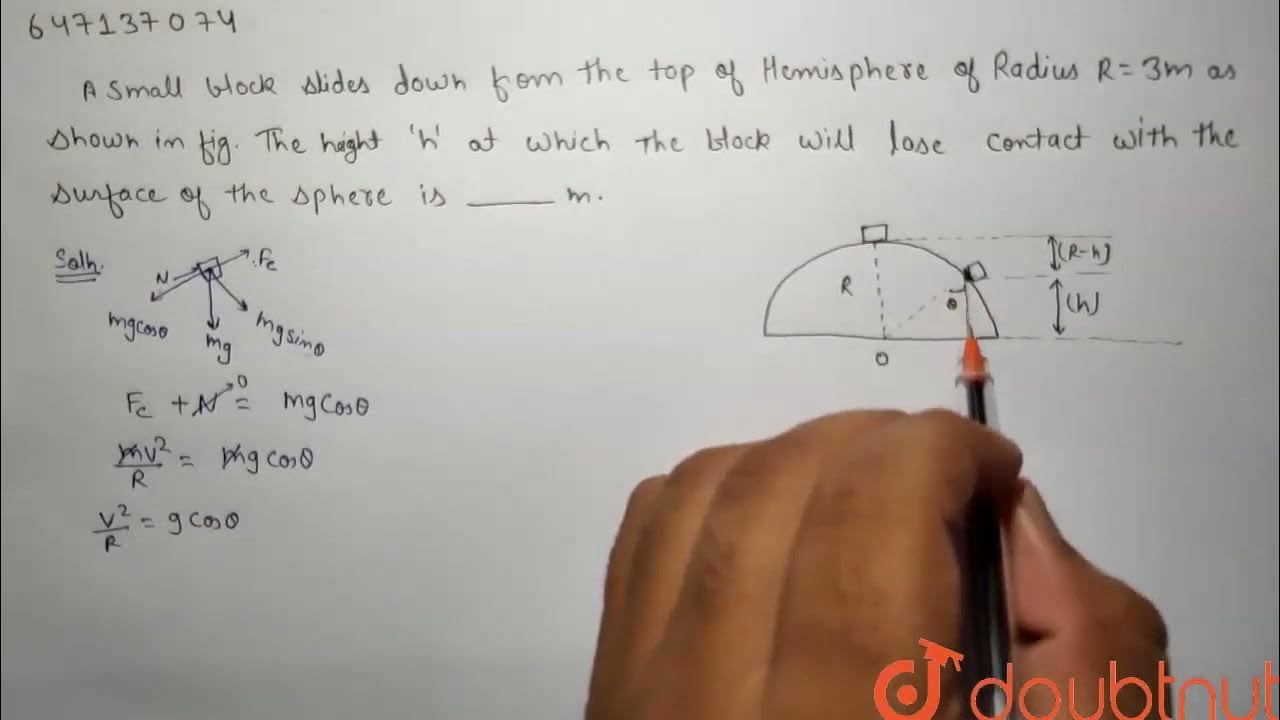 647137074
A small block slides down from the top of Hemisphere of Radius R = 3m as
shown in fig. The height 'h' at which the block will lose contact with the
surface of the sphere is ____ m.
Solh.
N
Fc
mgcosθ
mg
mgsinθ
R
θ
(R-h)
(h)
O
Fc + N = mgcosθ
0
mv²/R = mgcosθ
v²/R = gcosθ
doubtnut